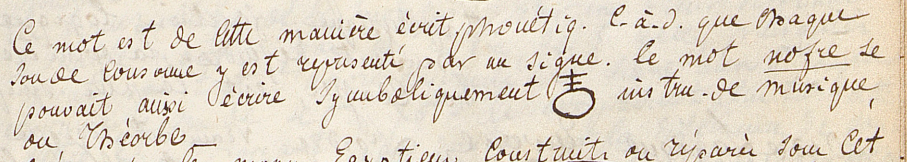 Ce mot est de cette manière écrit phonétiq. C-à-d. que chaque
son de consonne y est représenté par un signe. Ce mot nofre se
pouvait aussi écrire symboliquement instru. de musique
ou Théorbe
Egyptien, construit ou réparé sous cet